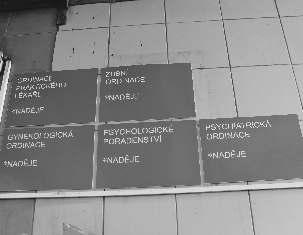 ORDINACE
PRAKTICKÉHO
LÉKAŘE
*NADĚJE
ZUBNÍ
ORDINACE
*NADĚJE
GYNEKOLOGICKÁ
ORDINACE
*NADĚJE
PSYCHOLOGICKÉ
PORADENSTVÍ
*NADĚJE
PSYCHIATRICKÁ
ORDINACE
*NADĚJE